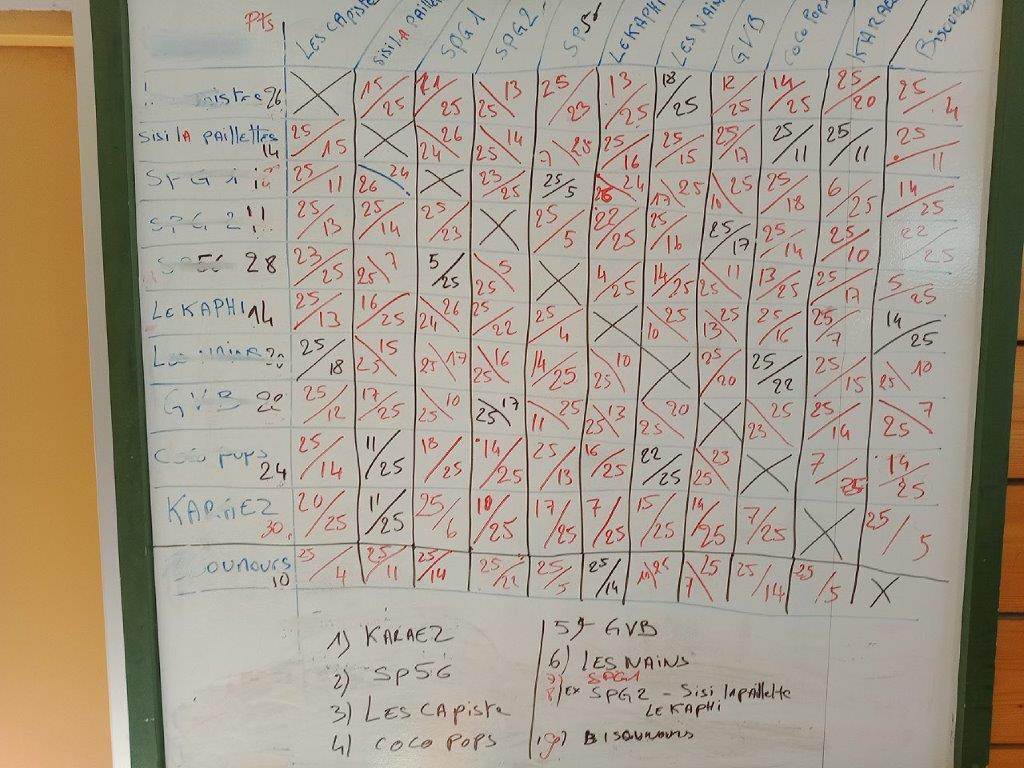 Pts LES CAPISTE SISI LA PAILLE SPG1 SPG2 SP56 LE KAPHI LES NAIN GVB COCO POPS KARAEZ BISOUNOU
26 15/25 21/25 25/13 25/23 13/25 18/25 12/25 14/25 25/20 25/4
SISI LA PAILLETTES 14 25/15 24/26 25/14 7/25 25/16 25/15 25/17 25/11 25/11 25/11
SPG 1 25/11 26/24 23/25 25/5 26/24 17/25 10/25 25/18 6/25 14/25
SPG 2 11 25/13 25/14 25/23 25/5 22/25 25/16 25/17 25/14 25/10 22/25
SP56 28 23/25 25/7 5/25 25/5 4/25 14/25 25/11 13/25 25/17 5/25
LE KAPHI 14 25/13 16/25 24/26 25/22 25/4 10/25 13/25 25/16 25/7 14/25
25/18 25/15 25/17 25/16 14/25 25/10 25/20 25/22 25/15 25/10
GVB 25/12 17/25 25/10 25/17 11/25 25/13 25/20 23/25 25/14 25/7
Coco pops 24 25/14 11/25 18/25 14/25 25/13 16/25 22/25 25/23 7/25 14/25
KARAEZ 30 20/25 11/25 25/6 10/25 17/25 7/25 15/25 14/25 7/25 25/5
OUNOURS 10 25/4 25/11 25/14 25/22 25/5 25/14 10/25 7/25 25/14 25/5
1) KARAEZ
2) SP56
3) LES CAPISTE
4) COCO POPS
5) GVB
6) LES NAINS
7) SPG1
8) Ex SPG2 - Sisi la paillette
LE KAPHI
BISOUNOURS